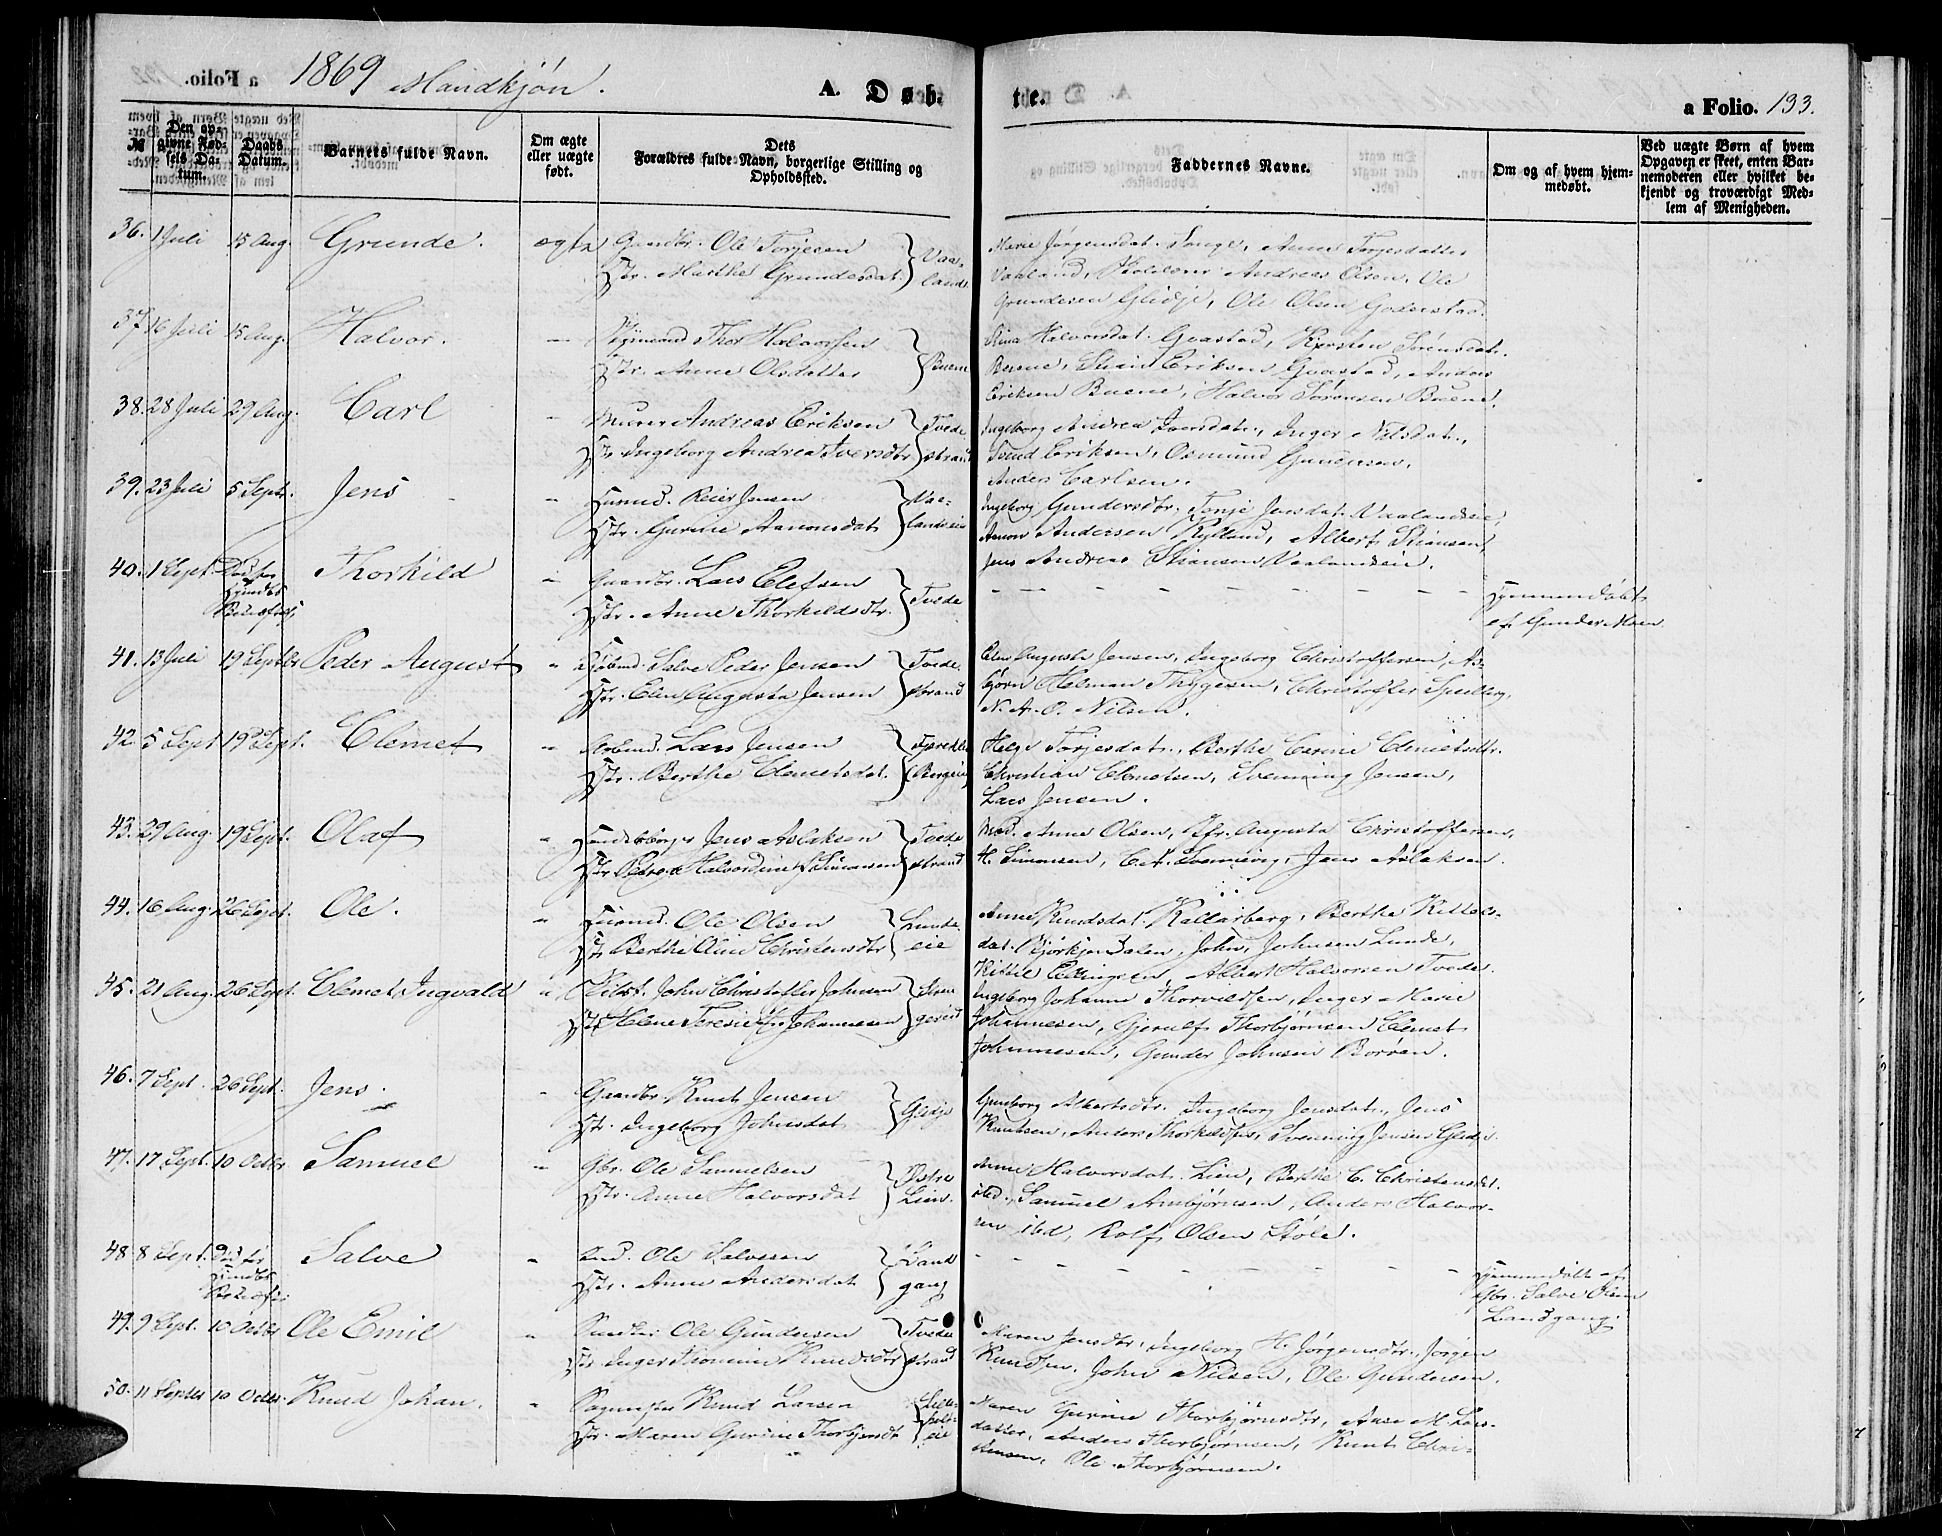 1869 Mandkjøn.
A. Døb-
te.
a Folio. 133.
№
Den op-
givne Fød-
sels Da-
tum.
Daabs
Datum.
Barnets fulde Navn.
Om ægte
eller uægte
født.
Dets
Forældres fulde Navn, borgerlige Stilling og
Opholdssted.
Faddernes Navne.
Om og af hvem hjem-
medøbt.
Ved uægte Børn af hvem
Opgaven er skeet, enten Bar-
nemoderen eller hvilket be-
kjendt og troværdigt Med-
lem af Menigheden.
36. 1 Juli 15 Aug. Grunde. ægte Gaardbr. Ole Torjesen
Hstr. Marthe Grundesdat. Vaa-
land.
Marie Jørgensdat. Songe, Anne Torjesdatter
Vaaland, Andreas Olsen, Ole
Grundesen Glidje, Ole Olsen Goderstad.
37. 16 Juli 15 Aug. Halvor. " Thor Halvorsen
Hstr. Anne Olsdatter Buene
Stina Halvorsdat. Gvastad, Kirsten Sørensdat.
Buene, Eriksen Gvastad, Anders
Eriksen Buene, Halvor Sørensen Buene.
38. 28 Juli 29 Aug. Carl " Murer Andreas Eriksen
Hstr. Ingeborg Andrea Iversdtr Tvede
strand
Ingeborg Andrea Iversdat., Inger Nilsdat.,
Svend Eriksen, Osmund Gundersen,
Anders Carlsen.
39. 23 Juli 5 Septr. Jens " Husmd. Reier Jensen
Hstr. Gurine Aanonsdat. Vaa-
landseie
Ingeborg Gundersdtr. Tonje Jensdat. Vaalandseie,
Aanon Andersen Rylland, Albert Stiansen,
Jens Andreas Stiansen Vaalandseie.
40. 1 Sept. Død før
Thorkild " Gaardbr. Lars Elefsen
Hstr. Anne Thorkildsdtr. Tvede
Hjemmedøbt
af Gunder Moen
41. 13 Juli 19 Septbr Peder August " Sjømd. Salve Peder Jensen
Hstr. Elen Augusta Jensen Tvede
strand
Elen Augusta Jensen, Ingeborg Christoffersen, As-
bjørn Helman Thygesen, Christoffer Spelberg,
N. A. O. Nilsen.
42 5 Sept 19 Sept. Clemet " Arbmd. Lars Jensen
Hstr. Berthe Clemetsdat.
Helje Torjesdat., Berthe Carine Clemetsdtr.
Christian Clemetsen, Svenning Jensen,
Lars Jensen.
43. 29 Aug. 19 Sept. Olaf " Jens Aslaksen
Hstr Halvordine Simonsen Tvede
strand
Mad. Anne Olsen, Jfr. Augusta Christoffersen,
H. Simonsen, Jens Aslaksen.
44. 16 Aug. 26 Sept. Ole. " Husmd. Ole Olsen
Hstr Berthe Oline Christensdtr Lunde
eie
Anne Knudsdat. Kallarberg, Berthe Kittels-
dat. Bjørkjendalen, John Johnsen Lunde,
Kittil Ellingsen, Albert Halvorsen Tvede.
45. 21 Aug. 26 Sept. Clemet Ingvald " John Christoffer Johnsen
Hstr Helene Teresie Johannesen
Ingeborg Johanne Thorvaldsen, Inger Marie
Johannesen, Gjerulf Thorbjørnsen Clemet
Johannesen, Gunder Johnsen Borøen.
46. 7 Sept. 26 Sept. Jens. " Gaardbr. Knut Jensen
Hstr. Ingeborg Johnsdat. Glidje
Gunborg Albertsdtr. Ingeborg Jensdat., Jens
Knutsen, Anders Thorkildsen, Svenning Jensen Glidje.
47. 17 Sept. 10 Octbr Samuel " Gbr. Ole Samuelsen
Hstr. Anne Halvorsdat Østre
Lien.
Anne Halvorsdat. Lien, Berthe C. Christensdat.
isted., Samuel Arnbjørnsen, Anders Halvor-
sen isted, Rolf Olsen Støle.
48. 8 Sept. Død før
Salve " Ole Salvesen
Hstr. Anne Andersdat Land
gang
Hjemmedøbt af
Gbr. Salve Olsen
Landgang.
49. 9 Sept. 10 Octbr Ole Emil " Ole Gundersen
Hstr. Inger Thomine Knudsdtr Tvede
strand
Maren Jensdtr., Ingeborg H. Jørgensdtr., Jørgen
Knudsen, John Nilsen, Ole Gundersen.
50. 11 Septbr 10 Octbr. Knud Johan. " Knud Larsen
Hstr. Maren Gurine Thorbjørnsdt
Maren Gurine Thorbjørnsdtr, Anse M. Lars-
datter, Anders Thorbjørnsen, Knut Chri-
stensen, Ole Thorbjørnsen.